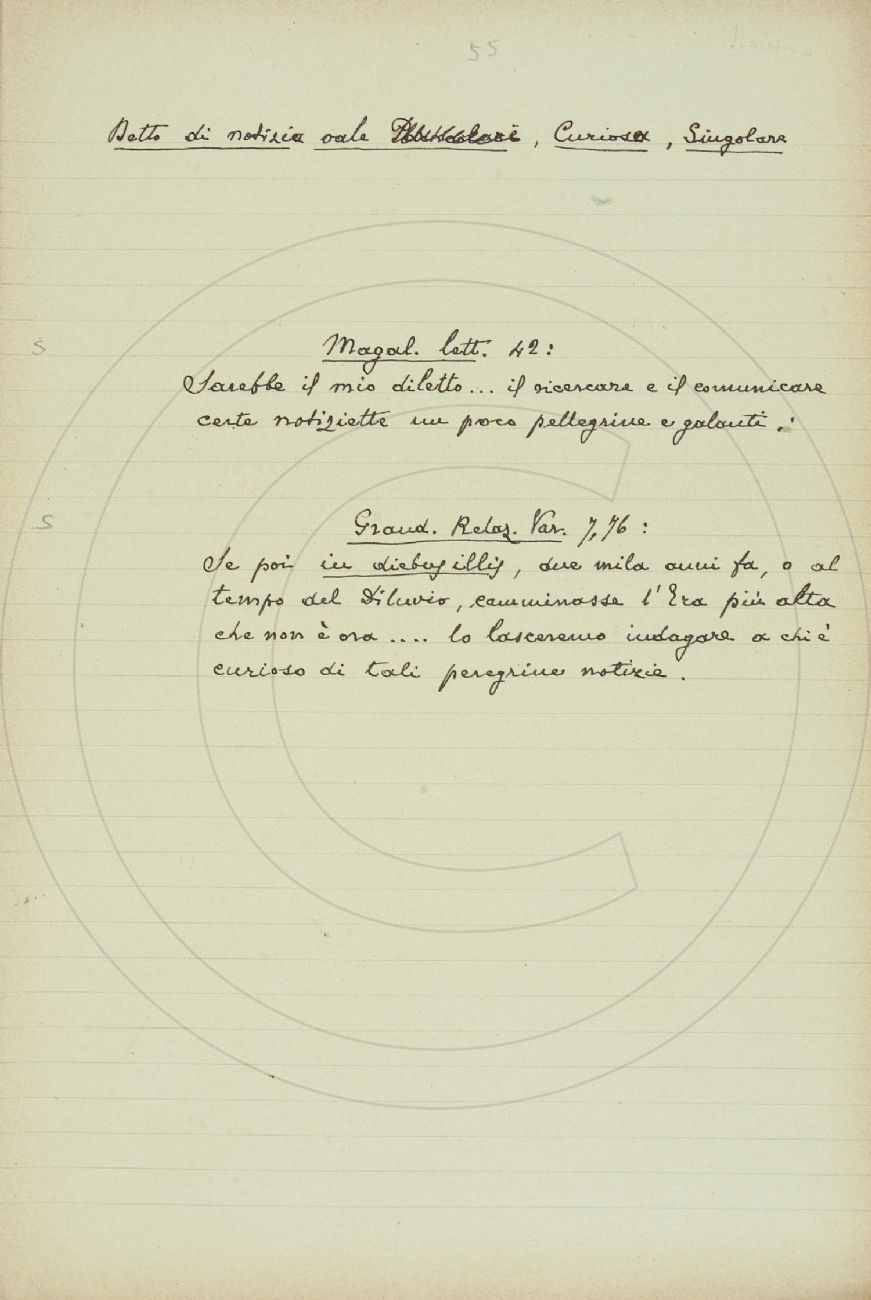 55
Detto di notizia vale , Curiosa , Singolare
S
Magal. lett. 42:
Sarebbe il mio diletto... il ricercare e il comunicare
certe notiziette un poco pellegrine e galanti.
S
Grand. Relaz. Var. 7,76 :
Se poi in diebus illis, due mila anni fa, o al
tempo del Diluvio, camminasse l'Era più alta
che non è ora .... lo lasceremo indagare a chi è
curioso di tali peregrine notizie.